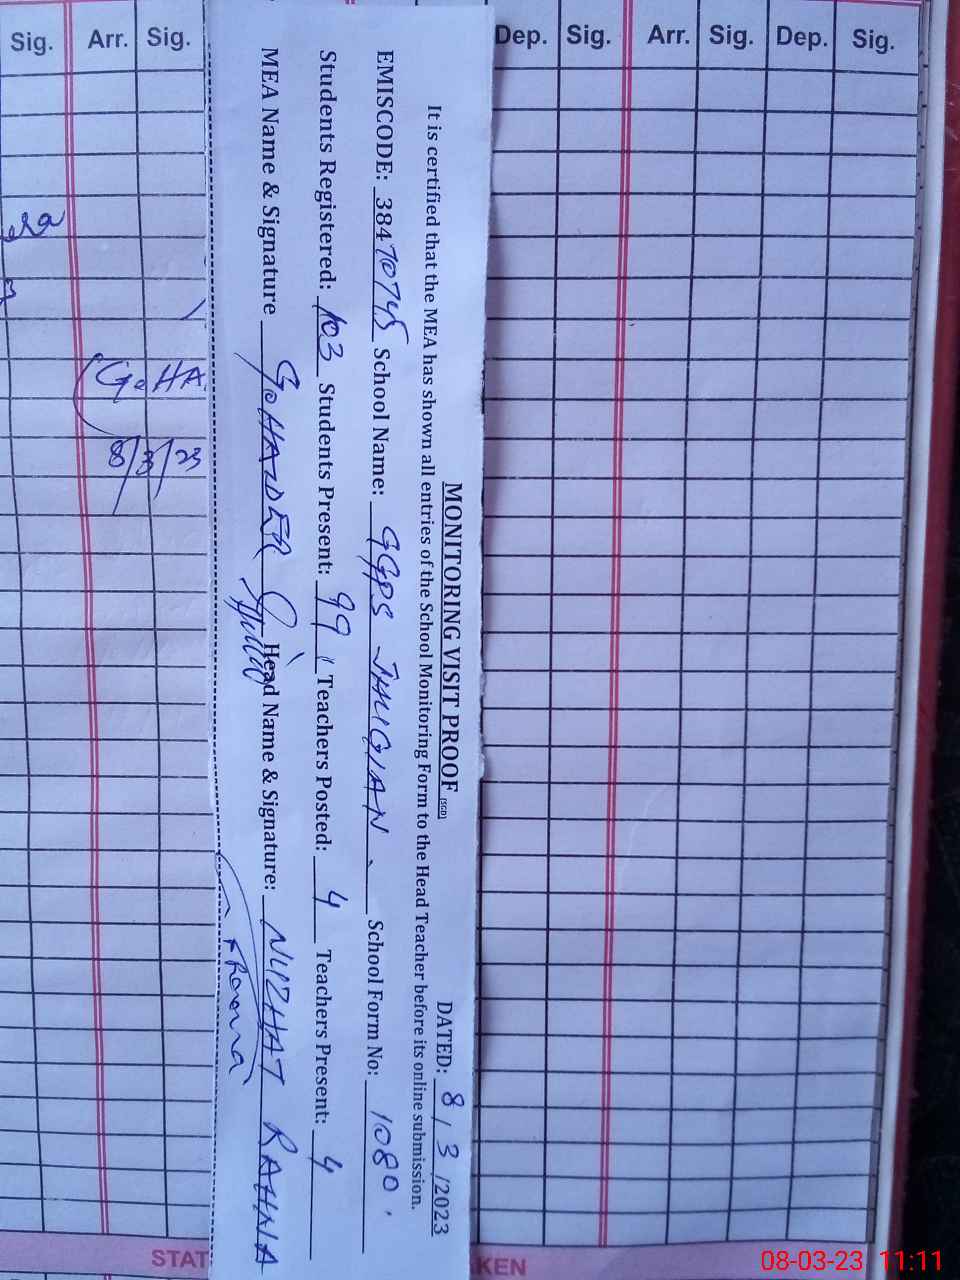 Sig. Arr. Sig. Dep. Sig. Arr. Sig. Dep. Sig.
MONITORING VISIT PROOF (SCD) DATED: 8/3/2023
It is certified that the MEA has shown all entries of the School Monitoring Form to the Head Teacher before its online submission.
EMISCODE: 38470745 School Name: GGPS JHUGIAN School Form No: 1080
Students Registered: 103 Students Present: 99 Teachers Posted: 4 Teachers Present: 4
MEA Name & Signature G. HAIDER Head Name & Signature: NUZHAT
G. HA
8/3/23
STAT
KEN
08-03-23 11:11